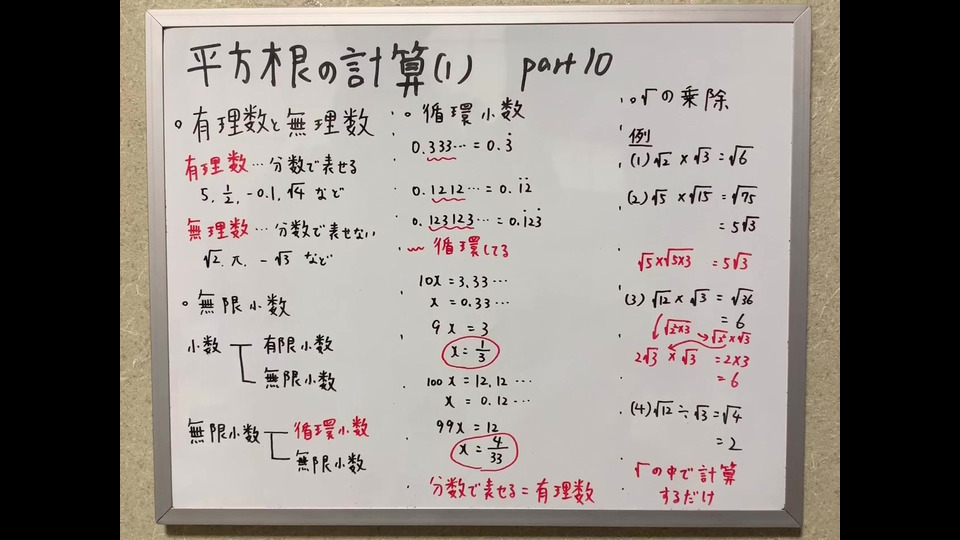 平方根の計算(1) part10
○有理数と無理数
有理数…分数で表せる
5, 1/2, -0.1, √4 など
無理数…分数で表せない
√2, π, -√3 など
○無限小数
小数
有限小数
無限小数
無限小数
循環小数
無限小数
○循環小数
0.333… = 0.3̇
0.1212… = 0.1̇2̇
0.123123… = 0.1̇23̇
〰 循環してる
10x = 3.33…
x = 0.33…
9x = 3
x = 1/3
100x = 12.12…
x = 0.12…
99x = 12
x = 4/33
分数で表せる = 有理数
○√の乗除
例
(1) √2 × √3 = √6
(2) √5 × √15 = √75
= 5√3
√5×√5×3 = 5√3
(3) √12 × √3 = √36
= 6
√2²×3 → √2²×√3
2√3 × √3 = 2×3
= 6
(4) √12 ÷ √3 = √4
= 2
√の中で計算
するだけ